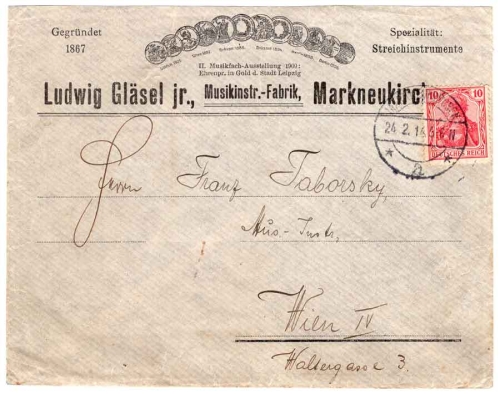 Gegründet
1867
Spezialität:
Streichinstrumente
II. Musikfach-Ausstellung 1909:
Ehrenpr. in Gold d. Stadt Leipzig
Ludwig Gläsel jr., Musikinstr.-Fabrik, Markneukirch
10 10
DEUTSCHES REICH
24. 2. 14
Herrn Franz Taborsky,
Mus.-Instr.
Wien IV
Waltergasse 3.